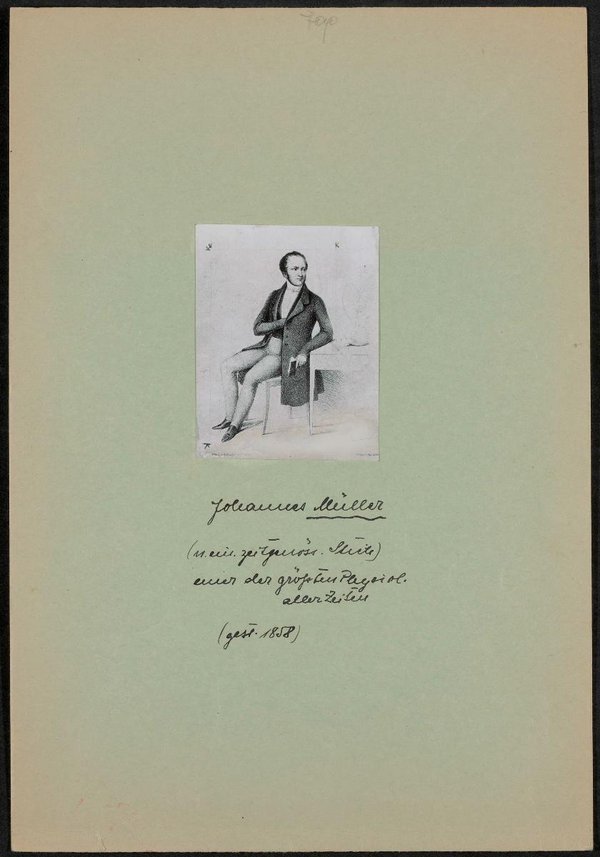 Johannes Müller
(n. ein. zeitgenöss. Stich)
einer der größten Physiol.
aller Zeiten
(gest. 1858)